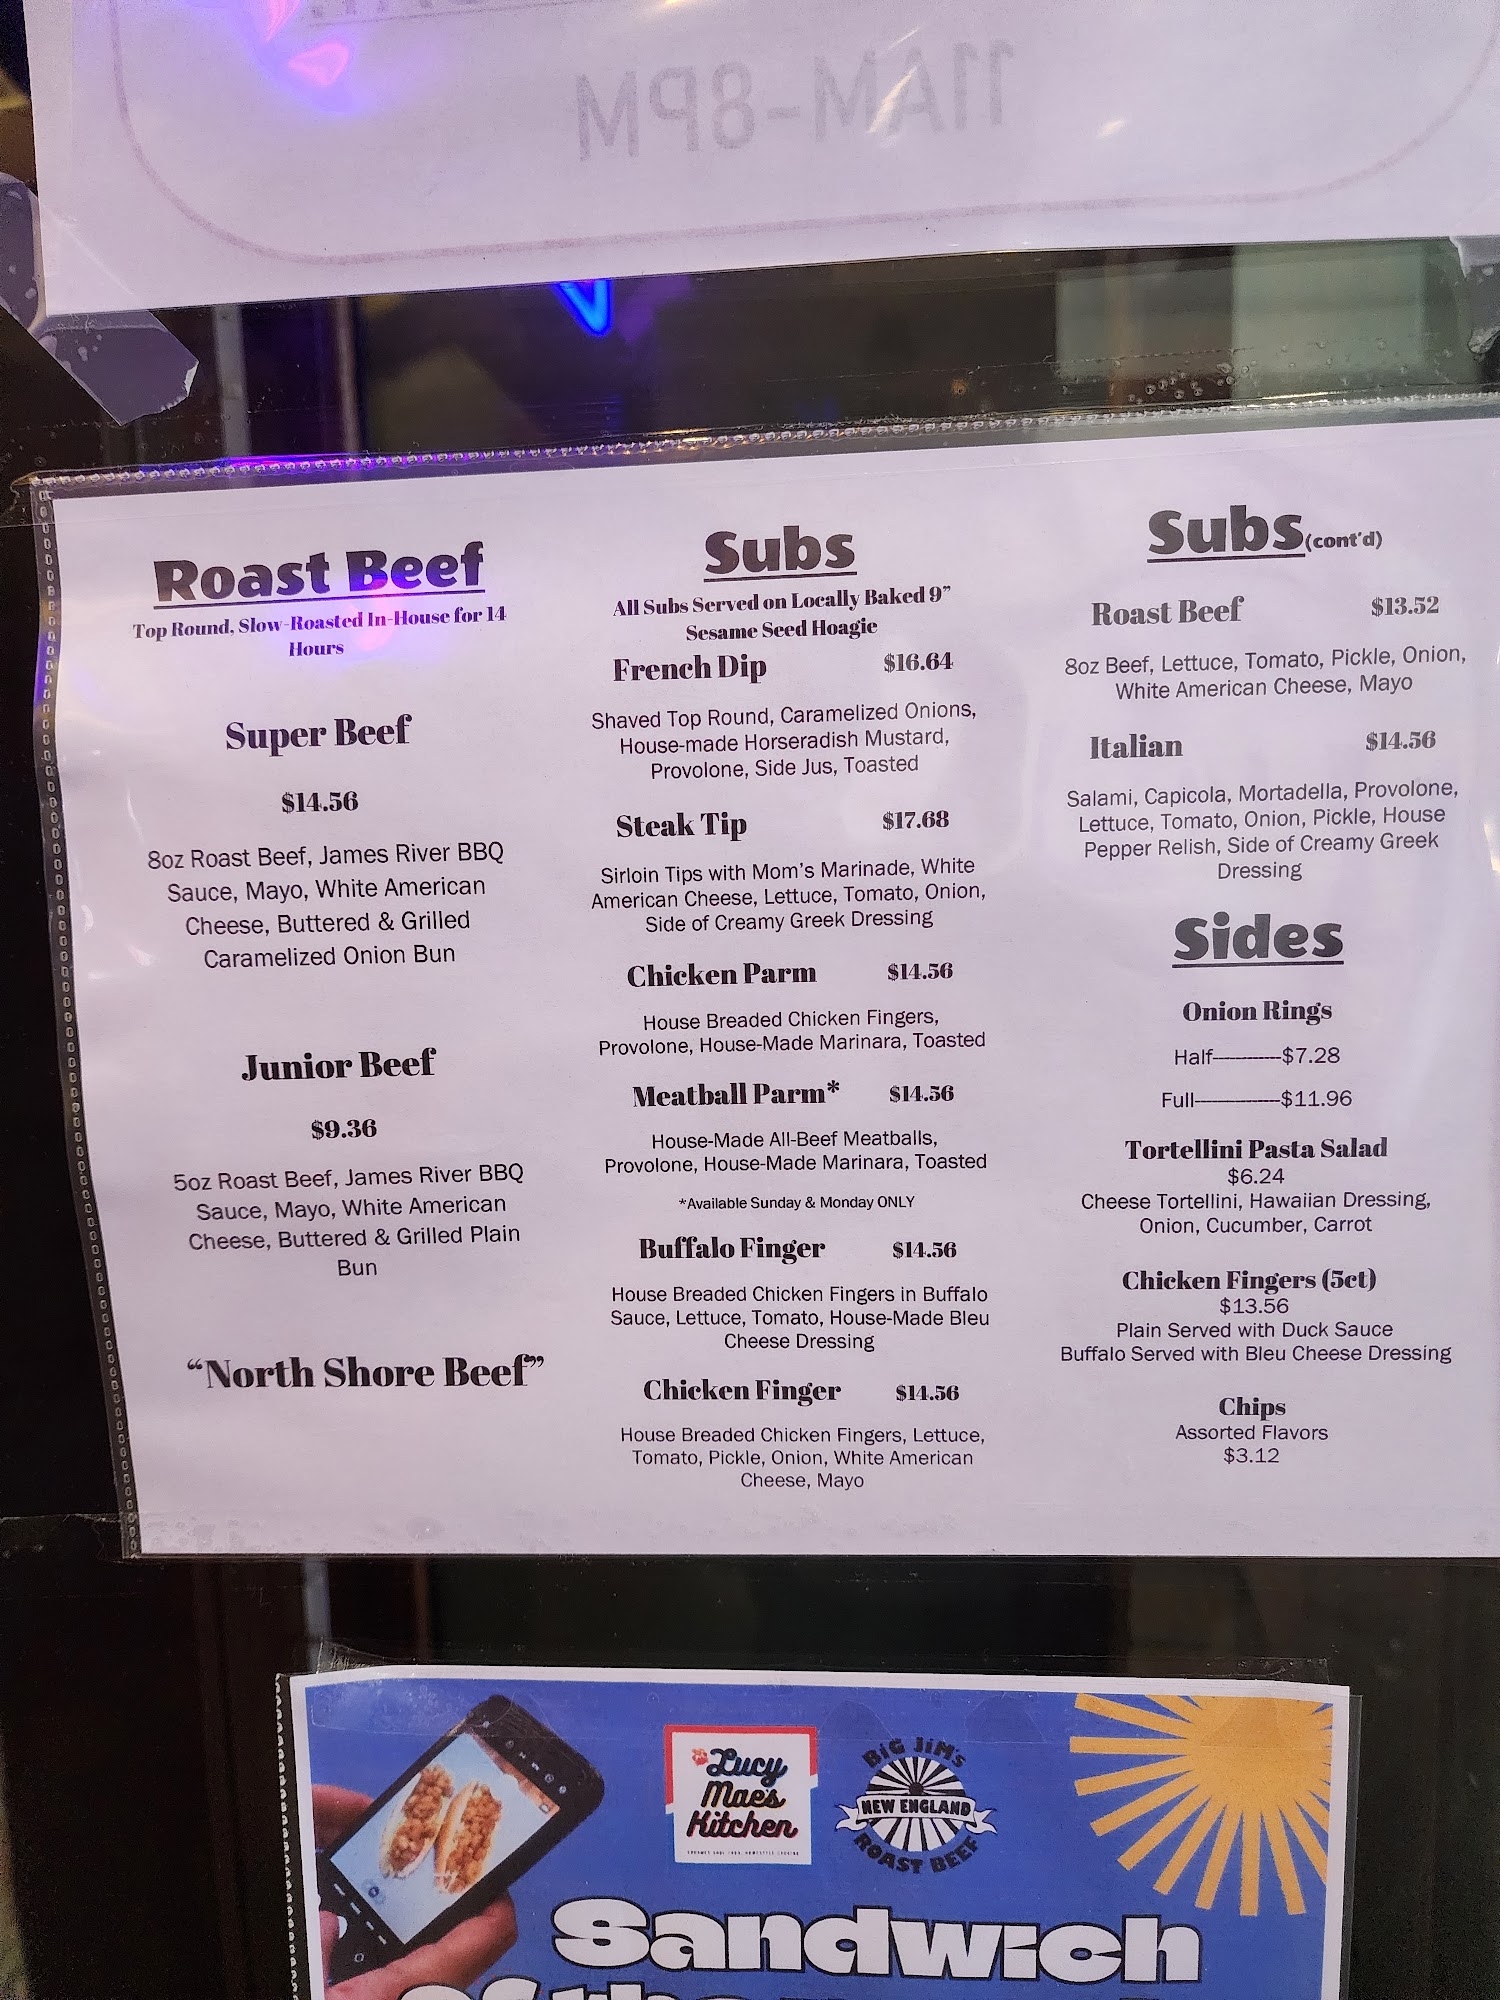 11AM-8PM
Roast Beef
Top Round, Slow-Roasted In-House for 14
Hours
Super Beef
$14.56
8oz Roast Beef, James River BBQ
Sauce, Mayo, White American
Cheese, Buttered & Grilled
Caramelized Onion Bun
Junior Beef
$9.36
5oz Roast Beef, James River BBQ
Sauce, Mayo, White American
Cheese, Buttered & Grilled Plain
Bun
“North Shore Beef”
Subs
All Subs Served on Locally Baked 9”
Sesame Seed Hoagie
French Dip $16.64
Shaved Top Round, Caramelized Onions,
House-made Horseradish Mustard,
Provolone, Side Jus, Toasted
Steak Tip $17.68
Sirloin Tips with Mom's Marinade, White
American Cheese, Lettuce, Tomato, Onion,
Side of Creamy Greek Dressing
Chicken Parm $14.56
House Breaded Chicken Fingers,
Provolone, House-Made Marinara, Toasted
Meatball Parm* $14.56
House-Made All-Beef Meatballs,
Provolone, House-Made Marinara, Toasted
*Available Sunday & Monday ONLY
Buffalo Finger $14.56
House Breaded Chicken Fingers in Buffalo
Sauce, Lettuce, Tomato, House-Made Bleu
Cheese Dressing
Chicken Finger $14.56
House Breaded Chicken Fingers, Lettuce,
Tomato, Pickle, Onion, White American
Cheese, Mayo
Subs (cont'd)
Roast Beef $13.52
8oz Beef, Lettuce, Tomato, Pickle, Onion,
White American Cheese, Mayo
Italian $14.56
Salami, Capicola, Mortadella, Provolone,
Lettuce, Tomato, Onion, Pickle, House
Pepper Relish, Side of Creamy Greek
Dressing
Sides
Onion Rings
Half----------$7.28
Full------------$11.96
Tortellini Pasta Salad
$6.24
Cheese Tortellini, Hawaiian Dressing,
Onion, Cucumber, Carrot
Chicken Fingers (5ct)
$13.56
Plain Served with Duck Sauce
Buffalo Served with Bleu Cheese Dressing
Chips
Assorted Flavors
$3.12
Lucy
Mae's
Kitchen
BiG JiM's
NEW ENGLAND
ROAST BEEF
Sandwich
of the